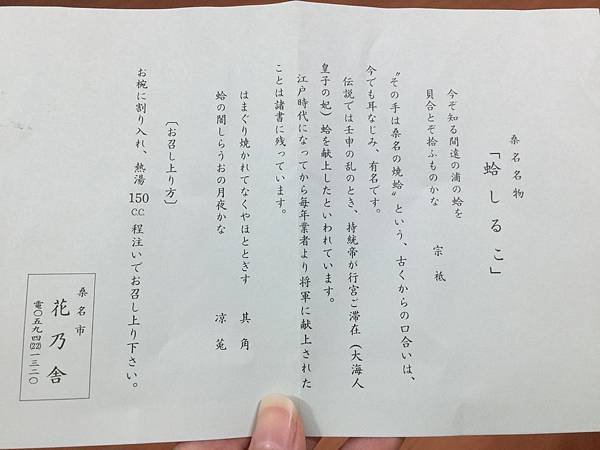 桑名名物
「蛤しるこ」
今ぞ知る間遠の浦の蛤を
貝合とぞ拾ふものかな　宗祇
〝その手は桑名の焼蛤〟という、古くからの口合いは、
今でも耳なじみ、有名です。
伝説では壬申の乱のとき、持統帝が行宮ご滞在（大海人
皇子の妃）蛤を献上したといわれています。
江戸時代になってから毎年業者より将軍に献上された
ことは諸書に残っています。
はまぐり焼かれてなくやほととぎす　其角
蛤の闇しらうおの月夜かな　涼菟
〔お召し上り方〕
お椀に割り入れ、熱湯150C.C.程注いでお召し上り下さい。
桑名市
花乃舎
電〇五九四㉒一三二〇